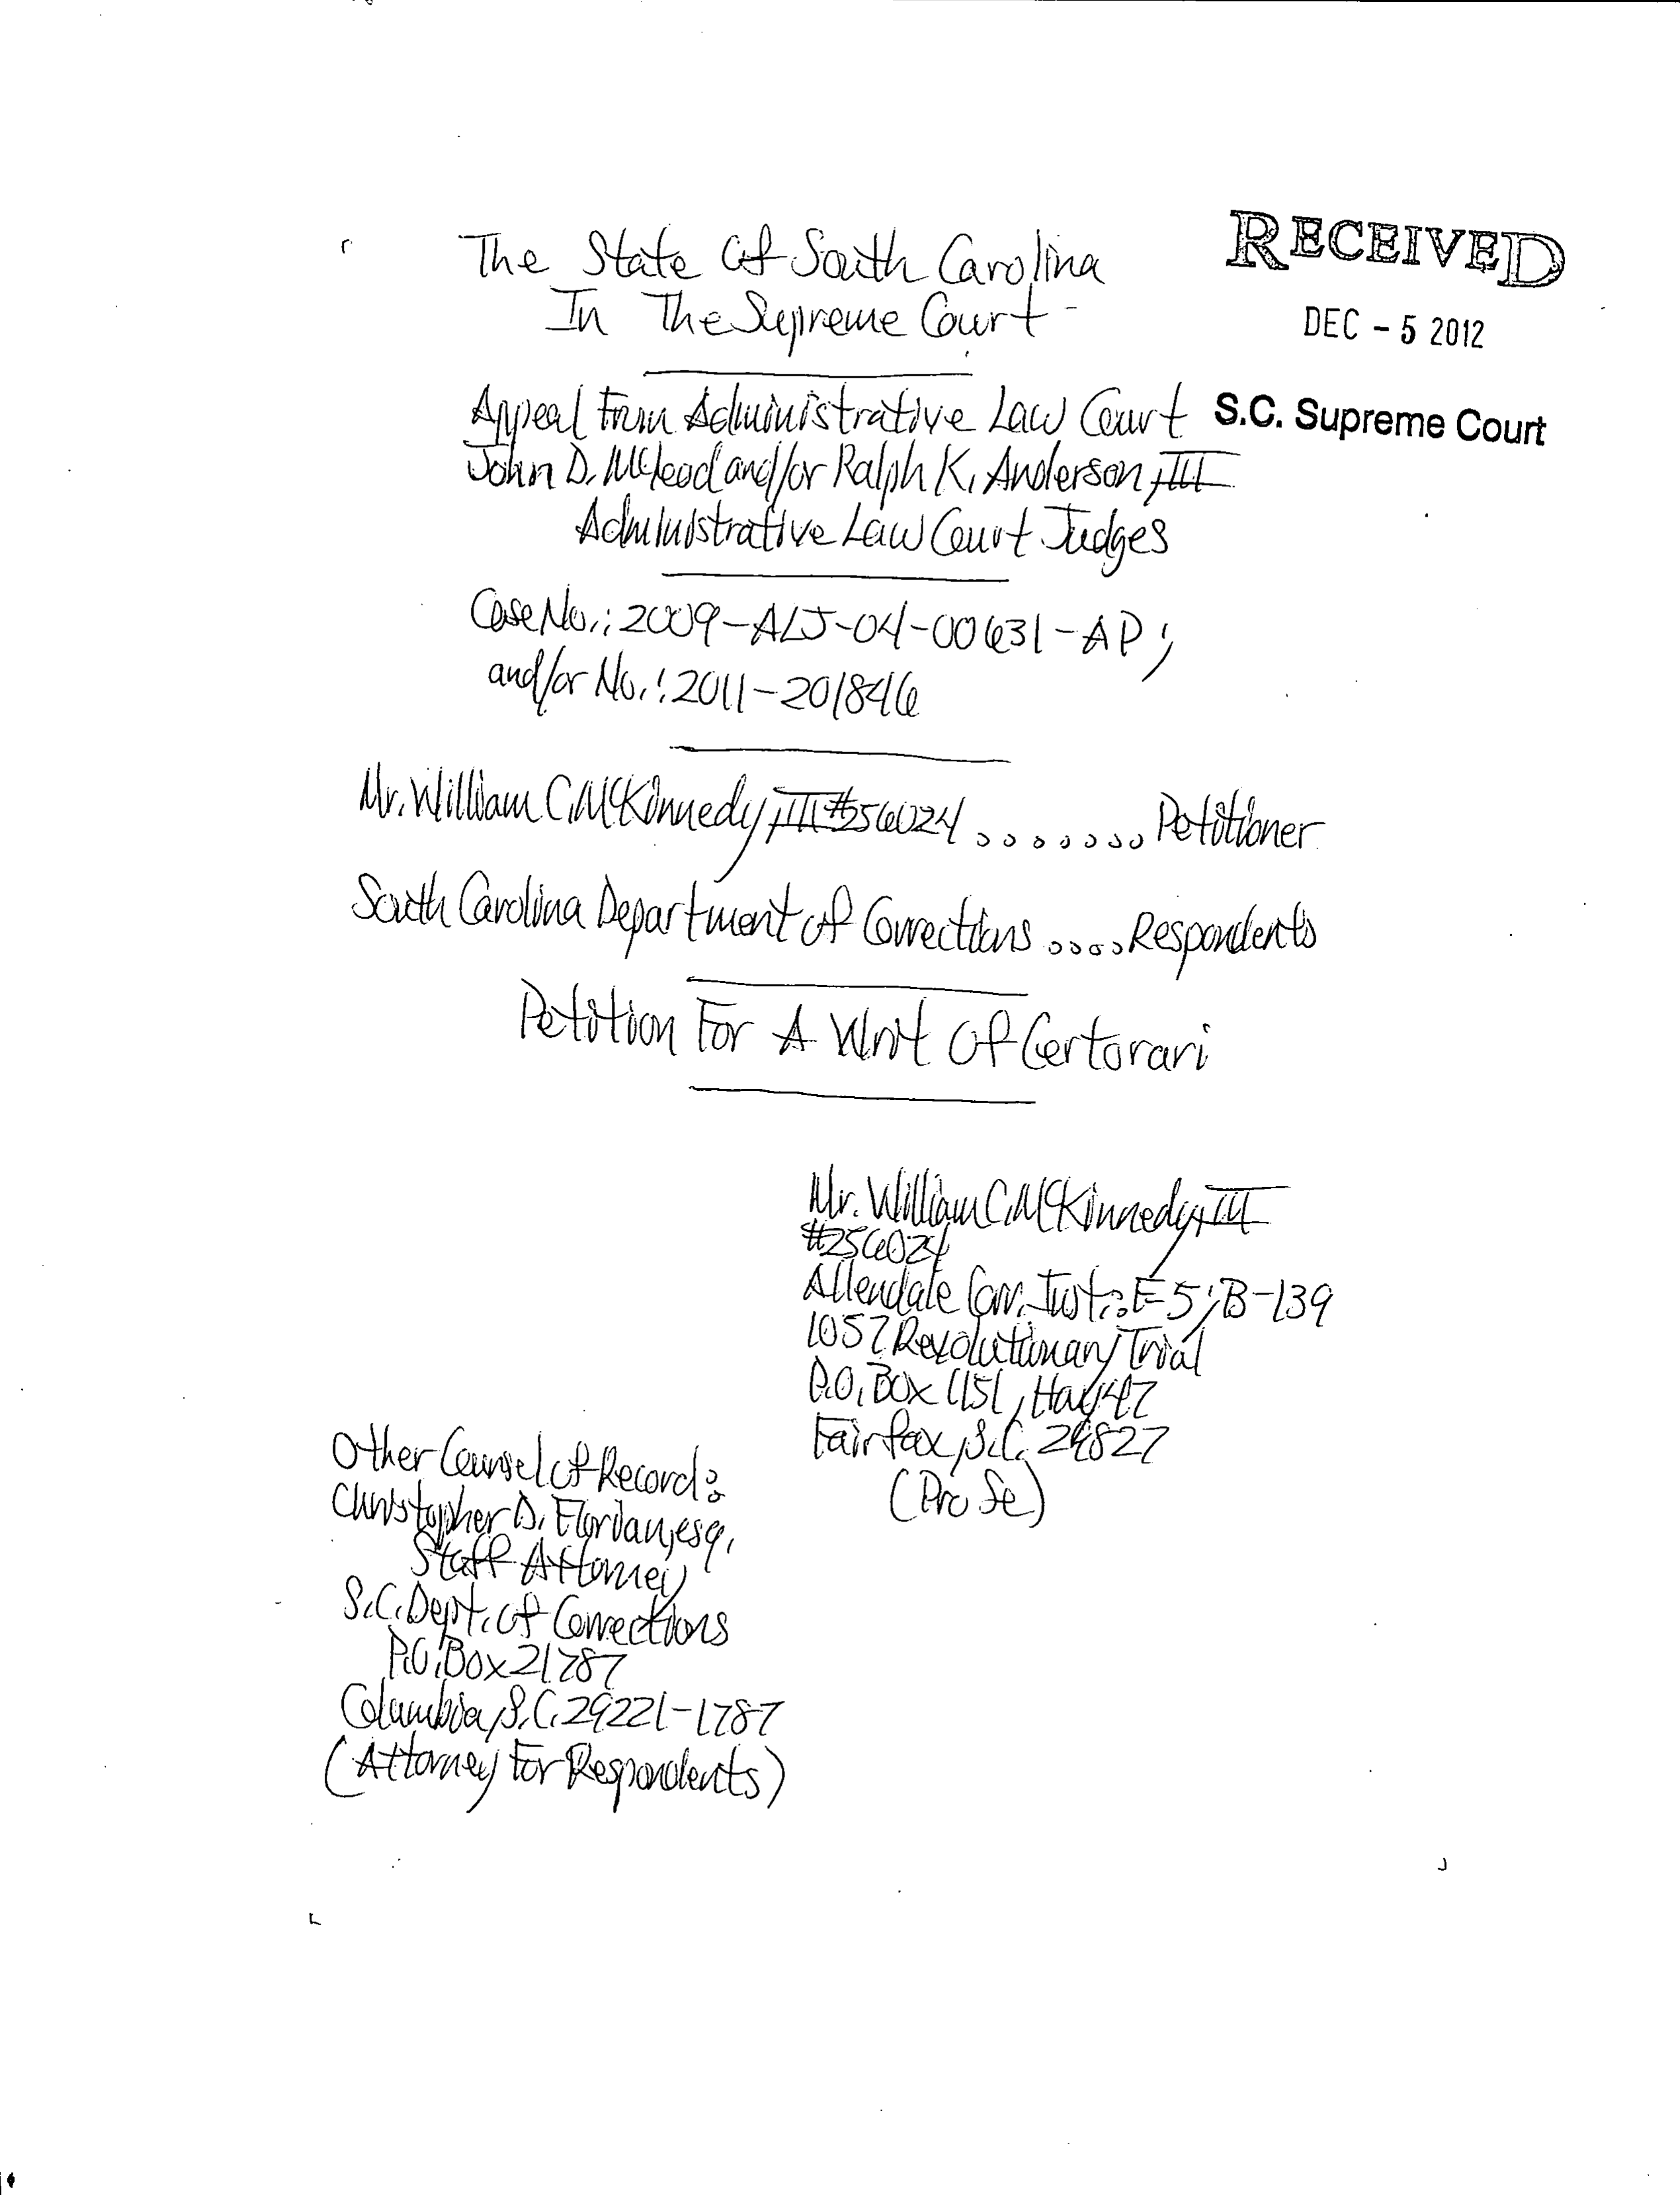 The State Of South Carolina
In The Supreme Court
RECEIVED
DEC - 5 2012
S.C. Supreme Court
Appeal From Administrative Law Court
John D. McLeod and/or Ralph K. Anderson, III
Administrative Law Court Judges
Case No.: 2009-ALJ-04-00631-AP;
and/or No.: 2011-201846
Mr. William C. McKinnedy, III #256024 ........ Petitioner
South Carolina Department of Corrections .... Respondents
Petition For A Writ Of Certorari
Mr. William C. McKinnedy, III
#256024
Allendale Corr. Inst.: F-5; B-139
1057 Revolutionary Trial
P.O. Box 1151, Hwy 47
Fairfax, S.C. 29827
(Pro Se)
Other Counsel of Record:
Christopher D. Florian, esq.
Staff Attorney
S.C. Dept. of Corrections
P.O. Box 21787
Columbia, S.C. 29221-1787
(Attorney For Respondents)